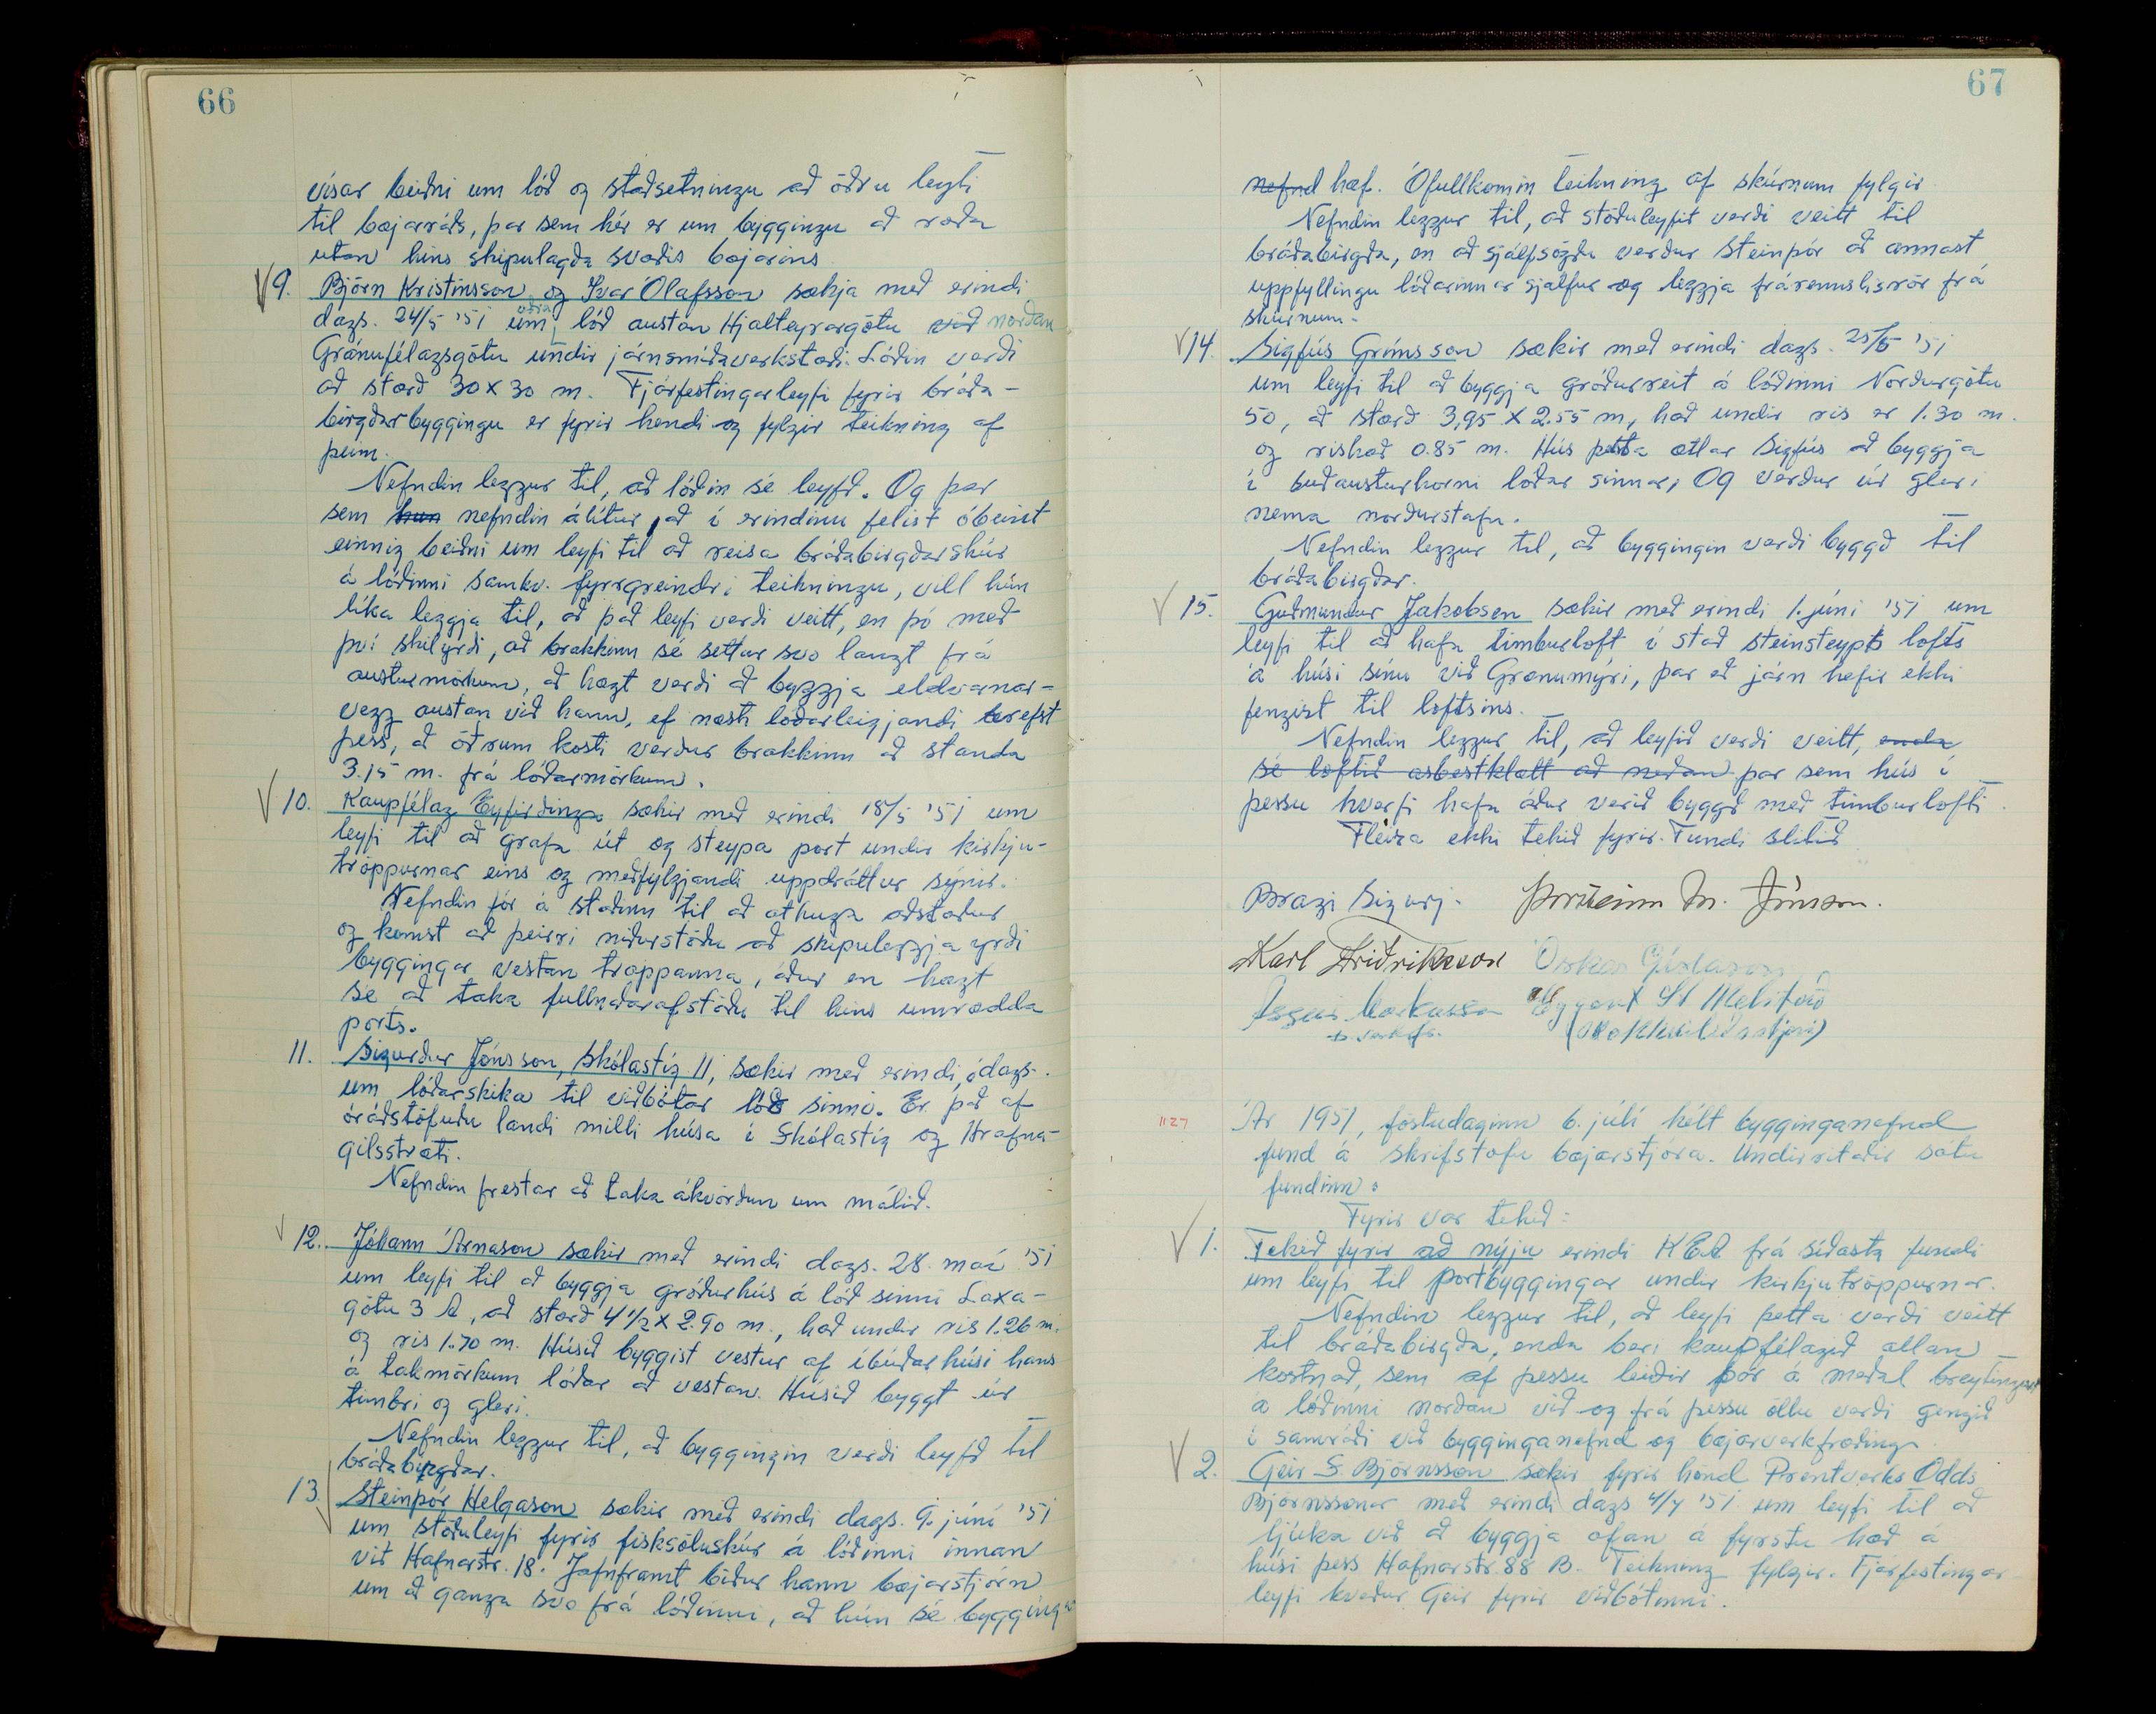 66
vísar beiðni um lóð og staðsetningu að öðru leyti
til bæjarráðs, þar sem hér er um byggingu að ræða
utan hins skipulagða svæðis bæjarins
9. Björn Kristinsson og Ívar Ólafsson sækja með erindi
dags. 24/5 '51 um lóð austan Hjalteyrargötu við norðan
Gránufélagsgötu undir járnsmíðaverkstæði. Lóðin verði
að stærð 30 x 30 m. Fjárfestingarleyfi fyrir bráða-
birgðarbyggingu er fyrir hendi og fylgir teikning af
þeim.
Nefndin leggur til, að lóðin sé leyfð. Og þar
sem hun nefndin álítur, að í erindinu felist óbeint
einnig beiðni um leyfi til að reisa bráðabirgðarskúr
á lóðinni samkv. fyrrgreindri teikningu, vill hún
líka leggja til, að það leyfi verði veitt, en þó með
því skilyrði, að brakkinn sé settur svo langt frá
austurmörkum, að hægt verði að byggja eldvarnar-
vegg austan við hann, ef næsti lóðarleigjandi krefst
þess, að öðrum kosti verður brakkinn að standa
3.15 m. frá lóðarmörkum.
10. Kaupfélag Eyfirðinga sækir með erindi 18/5 '51 um
leyfi til að grafa út og steypa port undir kirkju-
tröppurnar eins og meðfylgjandi uppdráttur sýnir.
Nefndin fór á staðinn til að athuga aðstæður
og komst að þeirri niðurstöðu að skipuleggja yrði
byggingar vestan trappanna, áður en hægt
sé að taka fullnaðarafstöðu til hins umrædda
ports.
11. Sigurður Jónsson, Skólastíg 11, sækir með erindi, ódags.
um lóðarskika til viðbótar lóð sinni. Er það af
óráðstöfuðu landi milli húsa í Skólastíg og Hrafna-
gilsstræti.
Nefndin frestar að taka ákvörðun um málið.
12. Jóhann Árnason sækir með erindi dags. 28. maí '51
um leyfi til að byggja gróðurhús á lóð sinni Laxa-
götu 3 A, að stærð 4 1/2 x 2.90 m., hæð undir ris 1.26 m.
og ris 1.70 m. Húsið byggist vestur af íbúðarhúsi hans
á takmörkum lóðar að vestan. Húsið byggt úr
timbri og gleri.
Nefndin leggur til, að byggingin verði leyfð til
bráðabirgðar.
13. Steinþór Helgason sækir með erindi dags. 9. júní '51
um stöðuleyfi fyrir fisksöluskúr á lóðinni innan
við Hafnarstr. 18. Jafnframt biður hann bæjarstjórn
um að ganga svo frá lóðinni, að hún sé bygginga
67
nefnd hæf. Ófullkomin teikning af skúrnum fylgir
Nefndin leggur til, að stöðuleyfið verði veitt til
bráðabirgða, en að sjálfsögðu verður Steinþór að annast
uppfyllingu lóðarinnar sjálfur og leggja frárennslisrör frá
skúrnum.
14. Sigfús Grímsson sækir með erindi dags. 25/5 '51
um leyfi til að byggja gróðurreit á lóðinni Norðurgötu
50, að stærð 3,95 x 2.55 m, hæð undir ris er 1.30 m.
og rishæð 0.85 m. Hús þetta ætlar Sigfús að byggja
í suðausturhorni lóðar sinnar, Og verður úr gleri
nema norðurstafn.
Nefndin leggur til, að byggingin verði byggð til
bráðabirgðar.
15. Guðmundur Jakobsen sækir með erindi 1. júní '51 um
leyfi til að hafa timburloft í stað steinsteypts lofts
á húsi sínu við Grænumýri, þar eð járn hefir ekki
fengist til loftsins.
Nefndin leggur til, að leyfið verði veitt, enda
sé loftið asbestklætt að neðan þar sem hús í
þessu hverfi hafa áður verið byggð með timburlofti.
Fleira ekki tekið fyrir. Fundi slitið
Bragi Sigurj. Þorsteinn M. Jónsson.
Karl Friðriksson Oskar Gíslason
Ásgeir Markússon Eggert St Melstað
(slökkviliðsstjóri)
1127
Ár 1951, föstudaginn 6. júlí hélt bygginganefnd
fund á skrifstofu bæjarstjóra. Undirritaðir sátu
fundinn.
Fyrir var tekið:
1. Tekið fyrir að nýju erindi KEA frá síðasta fundi
um leyfi til portbyggingar undir kirkjutröppurnar.
Nefndin leggur til, að leyfi þetta verði veitt
til bráðabirgða, enda beri kaupfélagið allan
kostnað, sem af þessu leiðir þar á meðal breytingar
á lóðinni norðan við og frá þessu öllu verði gengið
í samráði við bygginganefnd og bæjarverkfræðing.
2. Geir S. Björnsson sækir fyrir hönd Prentverks Odds
Björnssonar með erindi dags 4/7 '51 um leyfi til að
ljúka við að byggja ofan á fyrstu hæð á
húsi þess Hafnarstr. 88 B. Teikning fylgir. Fjárfestingar
leyfi kveður Geir fyrir viðbótinni.